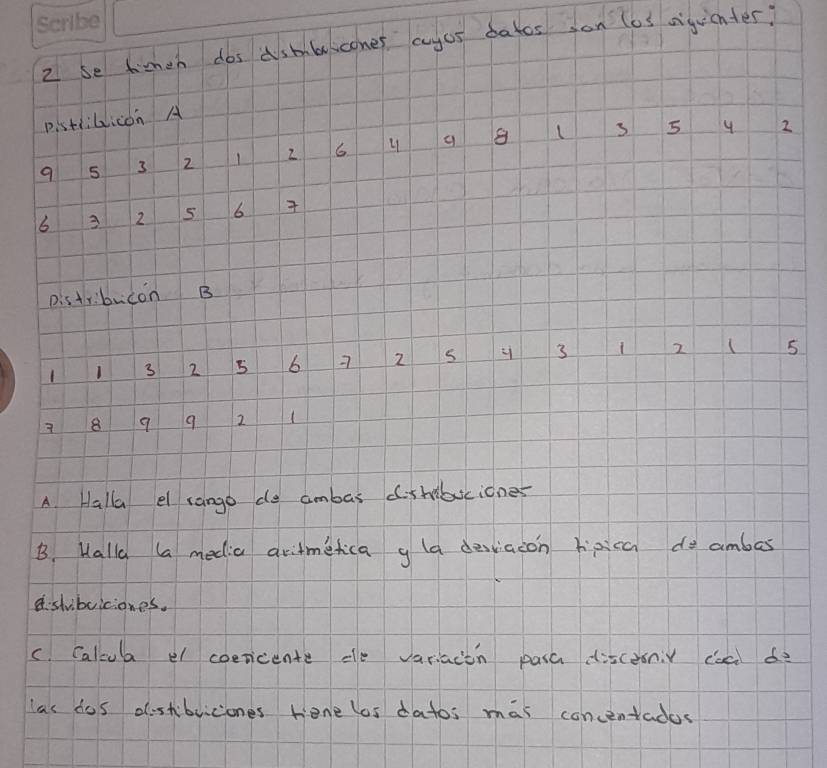 Scribe
2 Se tienen dos distribuiciones cuyos datos son los siguientes:
Distribuicón A
9 5 3 2 1 2 6 4 9 8 1 3 5 4 2
6 3 2 5 6 7
Distribucón B
1 1 3 2 5 6 7 2 5 4 3 1 2 1 5
7 8 9 9 2 1
A. Halla el rango de ambas distribuciones
B. Halla la media aritmética y la desviacón típica de ambas
distribuiciones.
C. Calcula el coeficente de variacón para discernir cúal de
las dos distribuiciones tiene los datos más concentados